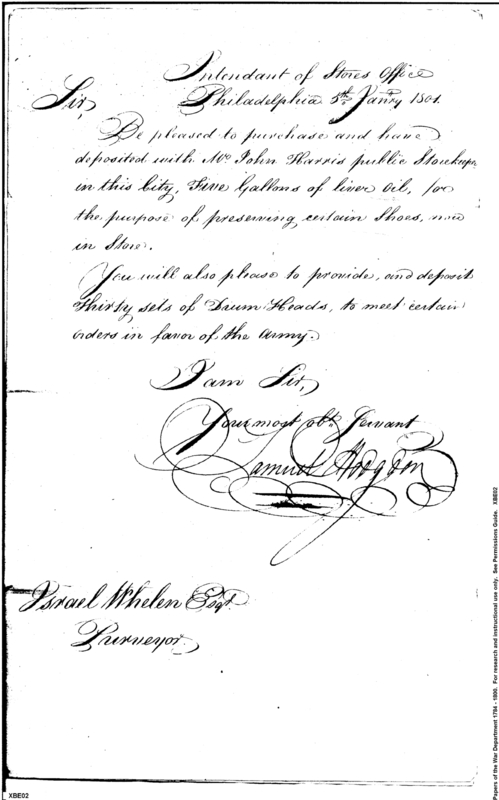 Intendant of Stores Office
Philadelphia 5th Janry 1801.
Sir,
Be pleased to purchase and have
deposited with Mr John Harris public Storekeeper
in this City, Five Gallons of liver Oil, for
the purpose of preserving certain Shoes, now
in Store.
You will also please to provide, and deposit
Thirty sets of Drum Heads, to meet certain
orders in favor of the Army.
I am Sir,
Your most obt. Servant
Samuel Hodgdon
Israel Whelen Esqr.
Purveyor.
XBE02
Papers of the War Department 1784 - 1800. For research and instructional use only. See Permissions Guide. XBE02